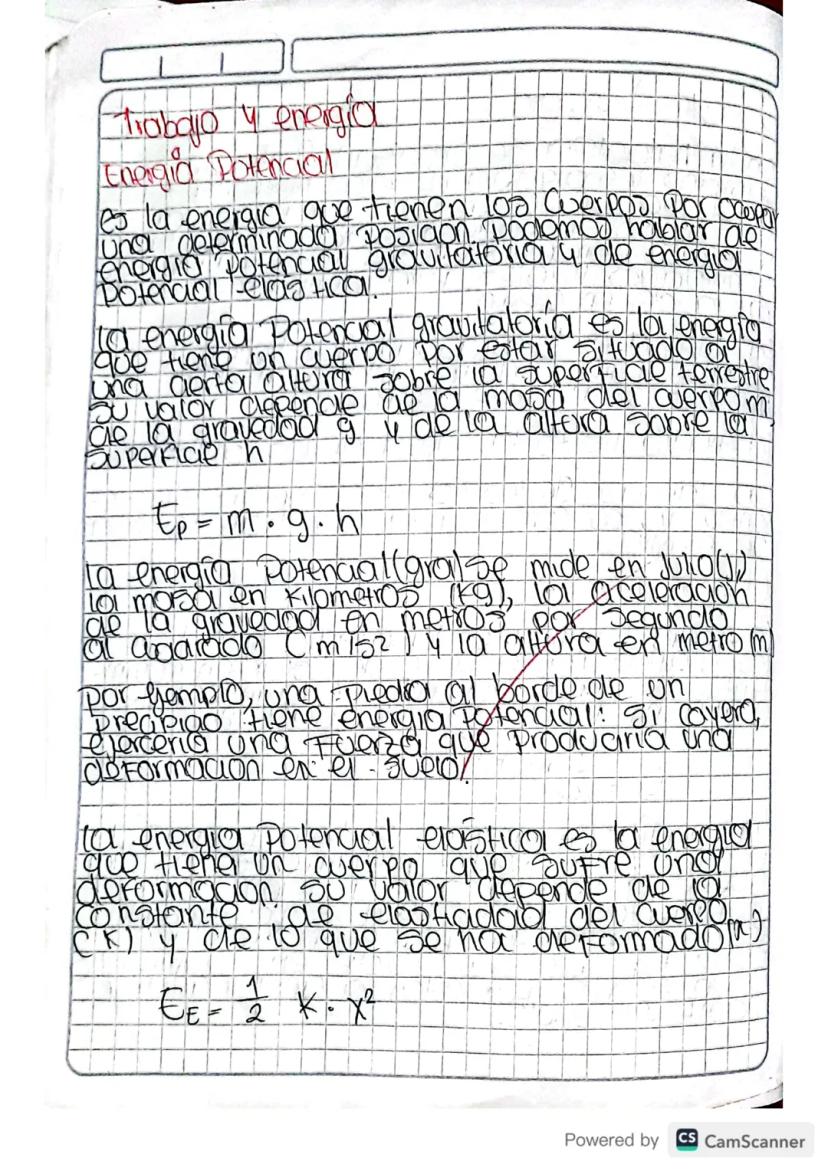 Trabajo y energía
Energía Potencial
es la energia que tienen los cuerpos por ocupar
una determinada posicion. podemos hablar de
energia potencial gravitatoria y de energia
potencial elastica.
la energía Potencial gravitatoría es la energía
que tiene un cuerpo por estar situado a
una cierta altura sobre la superficie terrestre
su valor depende de la masa del cuerpo m
de la gravedad g y de la altura sobre la
superficie h
Ep = m · g · h
la energía Potencial (gra) se mide en Julio (J),
la masa en Kilometros (kg), la aceleración
de la gravedad en metros por segundo
al cuadrado (m/s2) y la altura en metro (m)
por ejemplo, una piedra al borde de un
precipicio tiene energia potencial: si cayera,
ejerceria una fuerza que produciria una
deformacion en el suelo.
la energia potencial elástica es la energia
que tiene un cuerpo que sufre una
deformacion. su valor depende de la
constante de elasticidad del cuerpo
(K) y de lo que se ha deformado (x)
EE = 1/2 K · x²
Powered by CS CamScanner